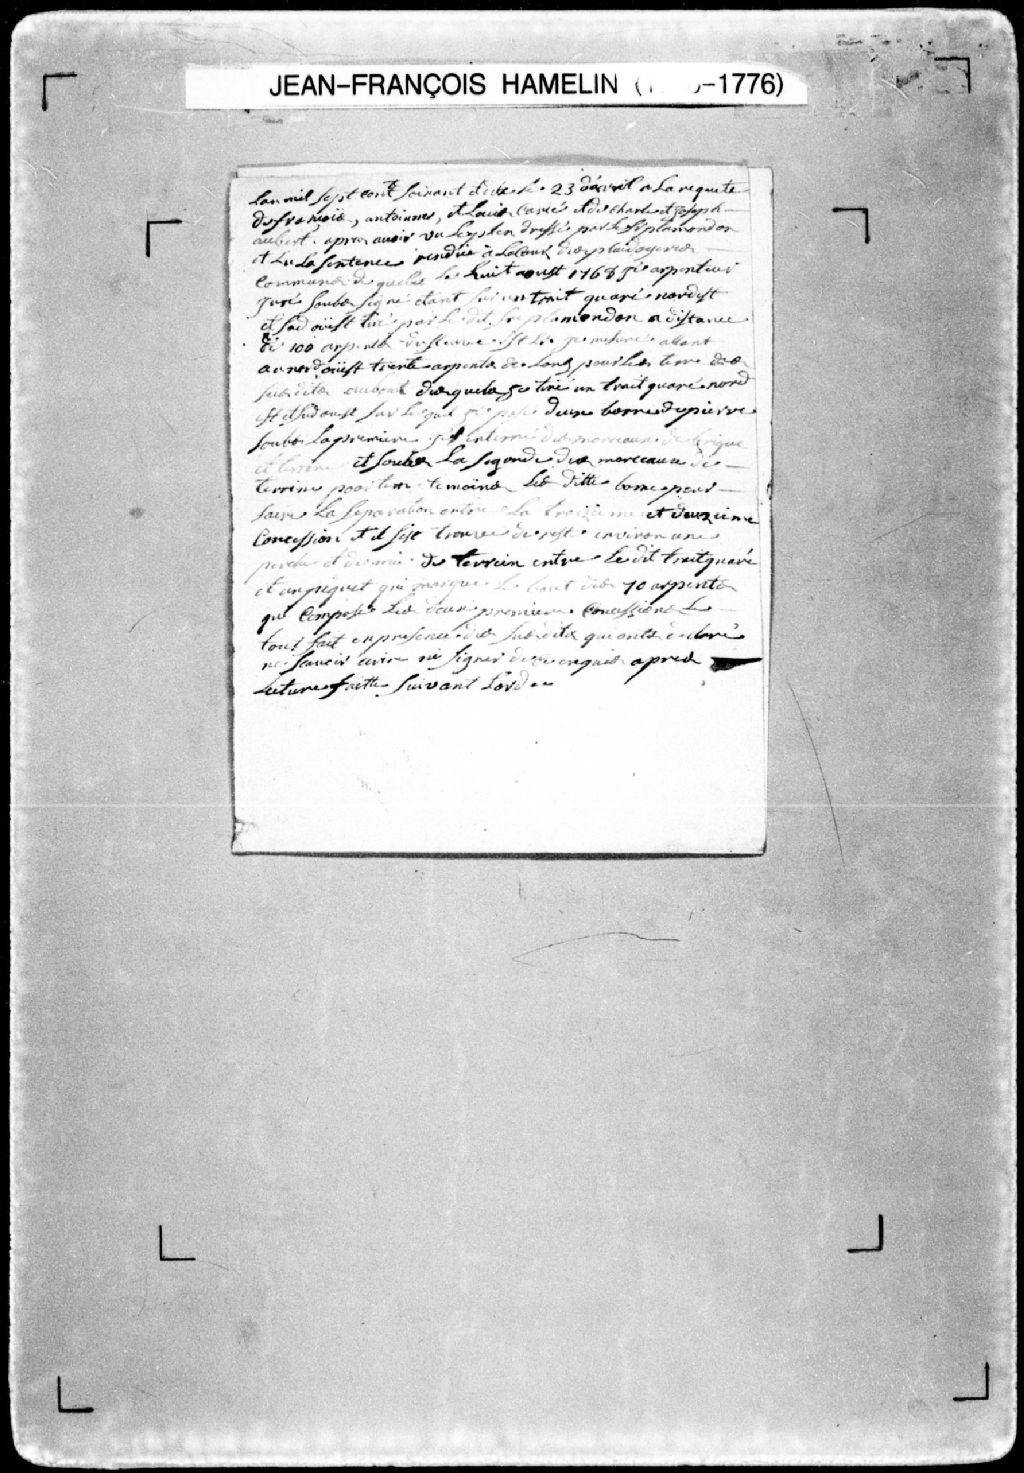 JEAN-FRANÇOIS HAMELIN ( -1776)
Lan mil sept cent soixant et dix le 23 davril a La requete
de françois, antoinne, et Louis et de Charle et Joseph
aubert apres avoir vu par le Sr plamondon
et Lu La sentence rendue a La Cour des plaidoyers
Commune de quebec Le huit aoust 1768 je arpenteur
Juré soubs signé etant sur un trait quaré nord est
et sud ouist tiré par le dit Sr plamondon a distance
de 100 arpents du fleuve St Ls je mesuré allant
au nord ouist trente arpents de Long pour les terre des
susdits au bout desquels je tiré un trait quaré nord
est et sud ouest sur le quel je posé deux borne de pierre
soubs La premiere j'es enterré des morceaux de brique
et terrine et soubs La segonde des morceaux de
terrine pour temoins Les ditte borne pour
faire La separation entre La troizieme et deuzieme
Concession et il sest trouve de reste environ une
perche et demie de terrein entre Le dit trait quaré
et un piquet qui marque Le bout des 70 arpents
qui Compose Les deux premiere Concessions Le
tout fait en presence des susdits qui onts declaré
ne savoir ecrire ni signer de ce enquis apres
Lecture faitte suivant Lordce